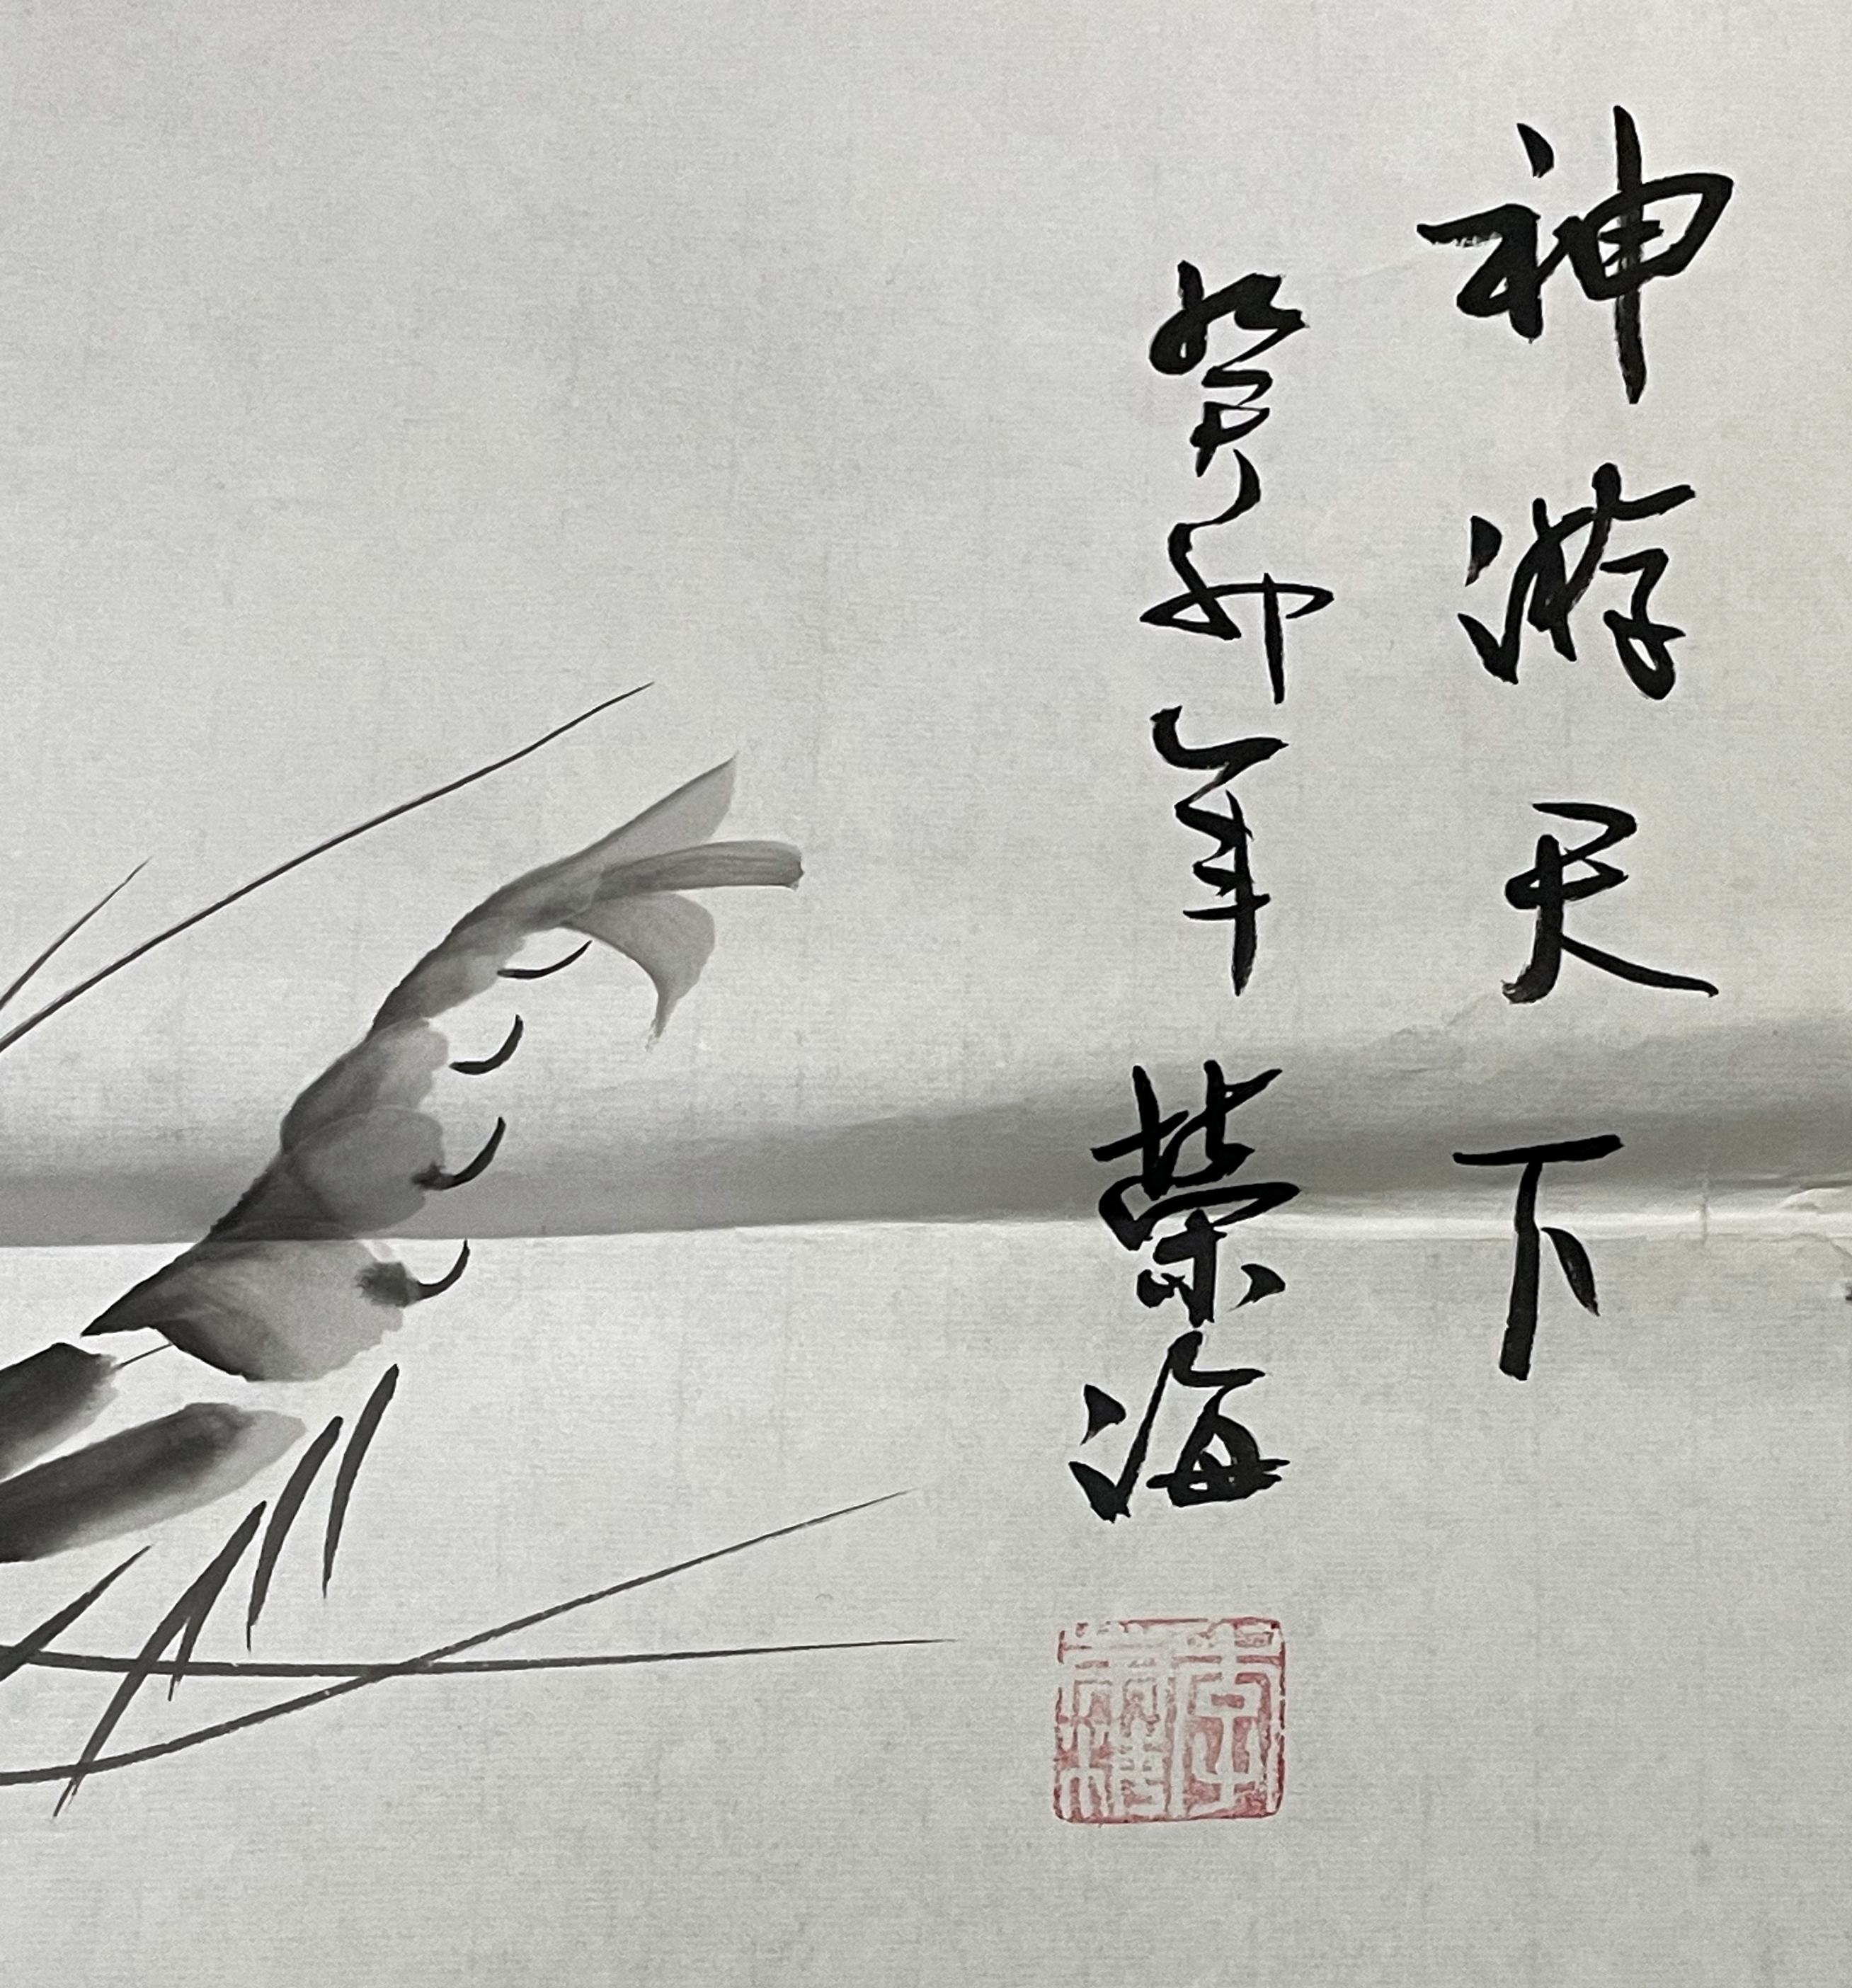 神游天下
癸卯年 荣海